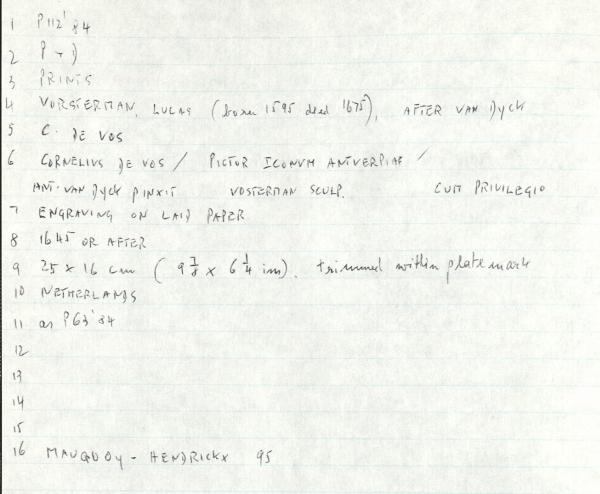 1 P112'84
2 P-D
3 PRINTS
4 VORSTERMAN, LUCAS (born 1595 died 1675), AFTER VAN DYCK
5 C. DE VOS
6 CORNELIUS DE VOS / PICTOR ICONVM ANTVERPIAE /
ANT. VAN DYCK PINXIT VOSTERMAN SCULP. CUM PRIVILEGIO
7 ENGRAVING ON LAID PAPER
8 1645 OR AFTER
9 25 x 16 cm ( 9 7/8 x 6 1/4 in). trimmed within platemark
10 NETHERLANDS
11 as P63'84
12
13
14
15
16 MAUQUOY - HENDRICKX 95